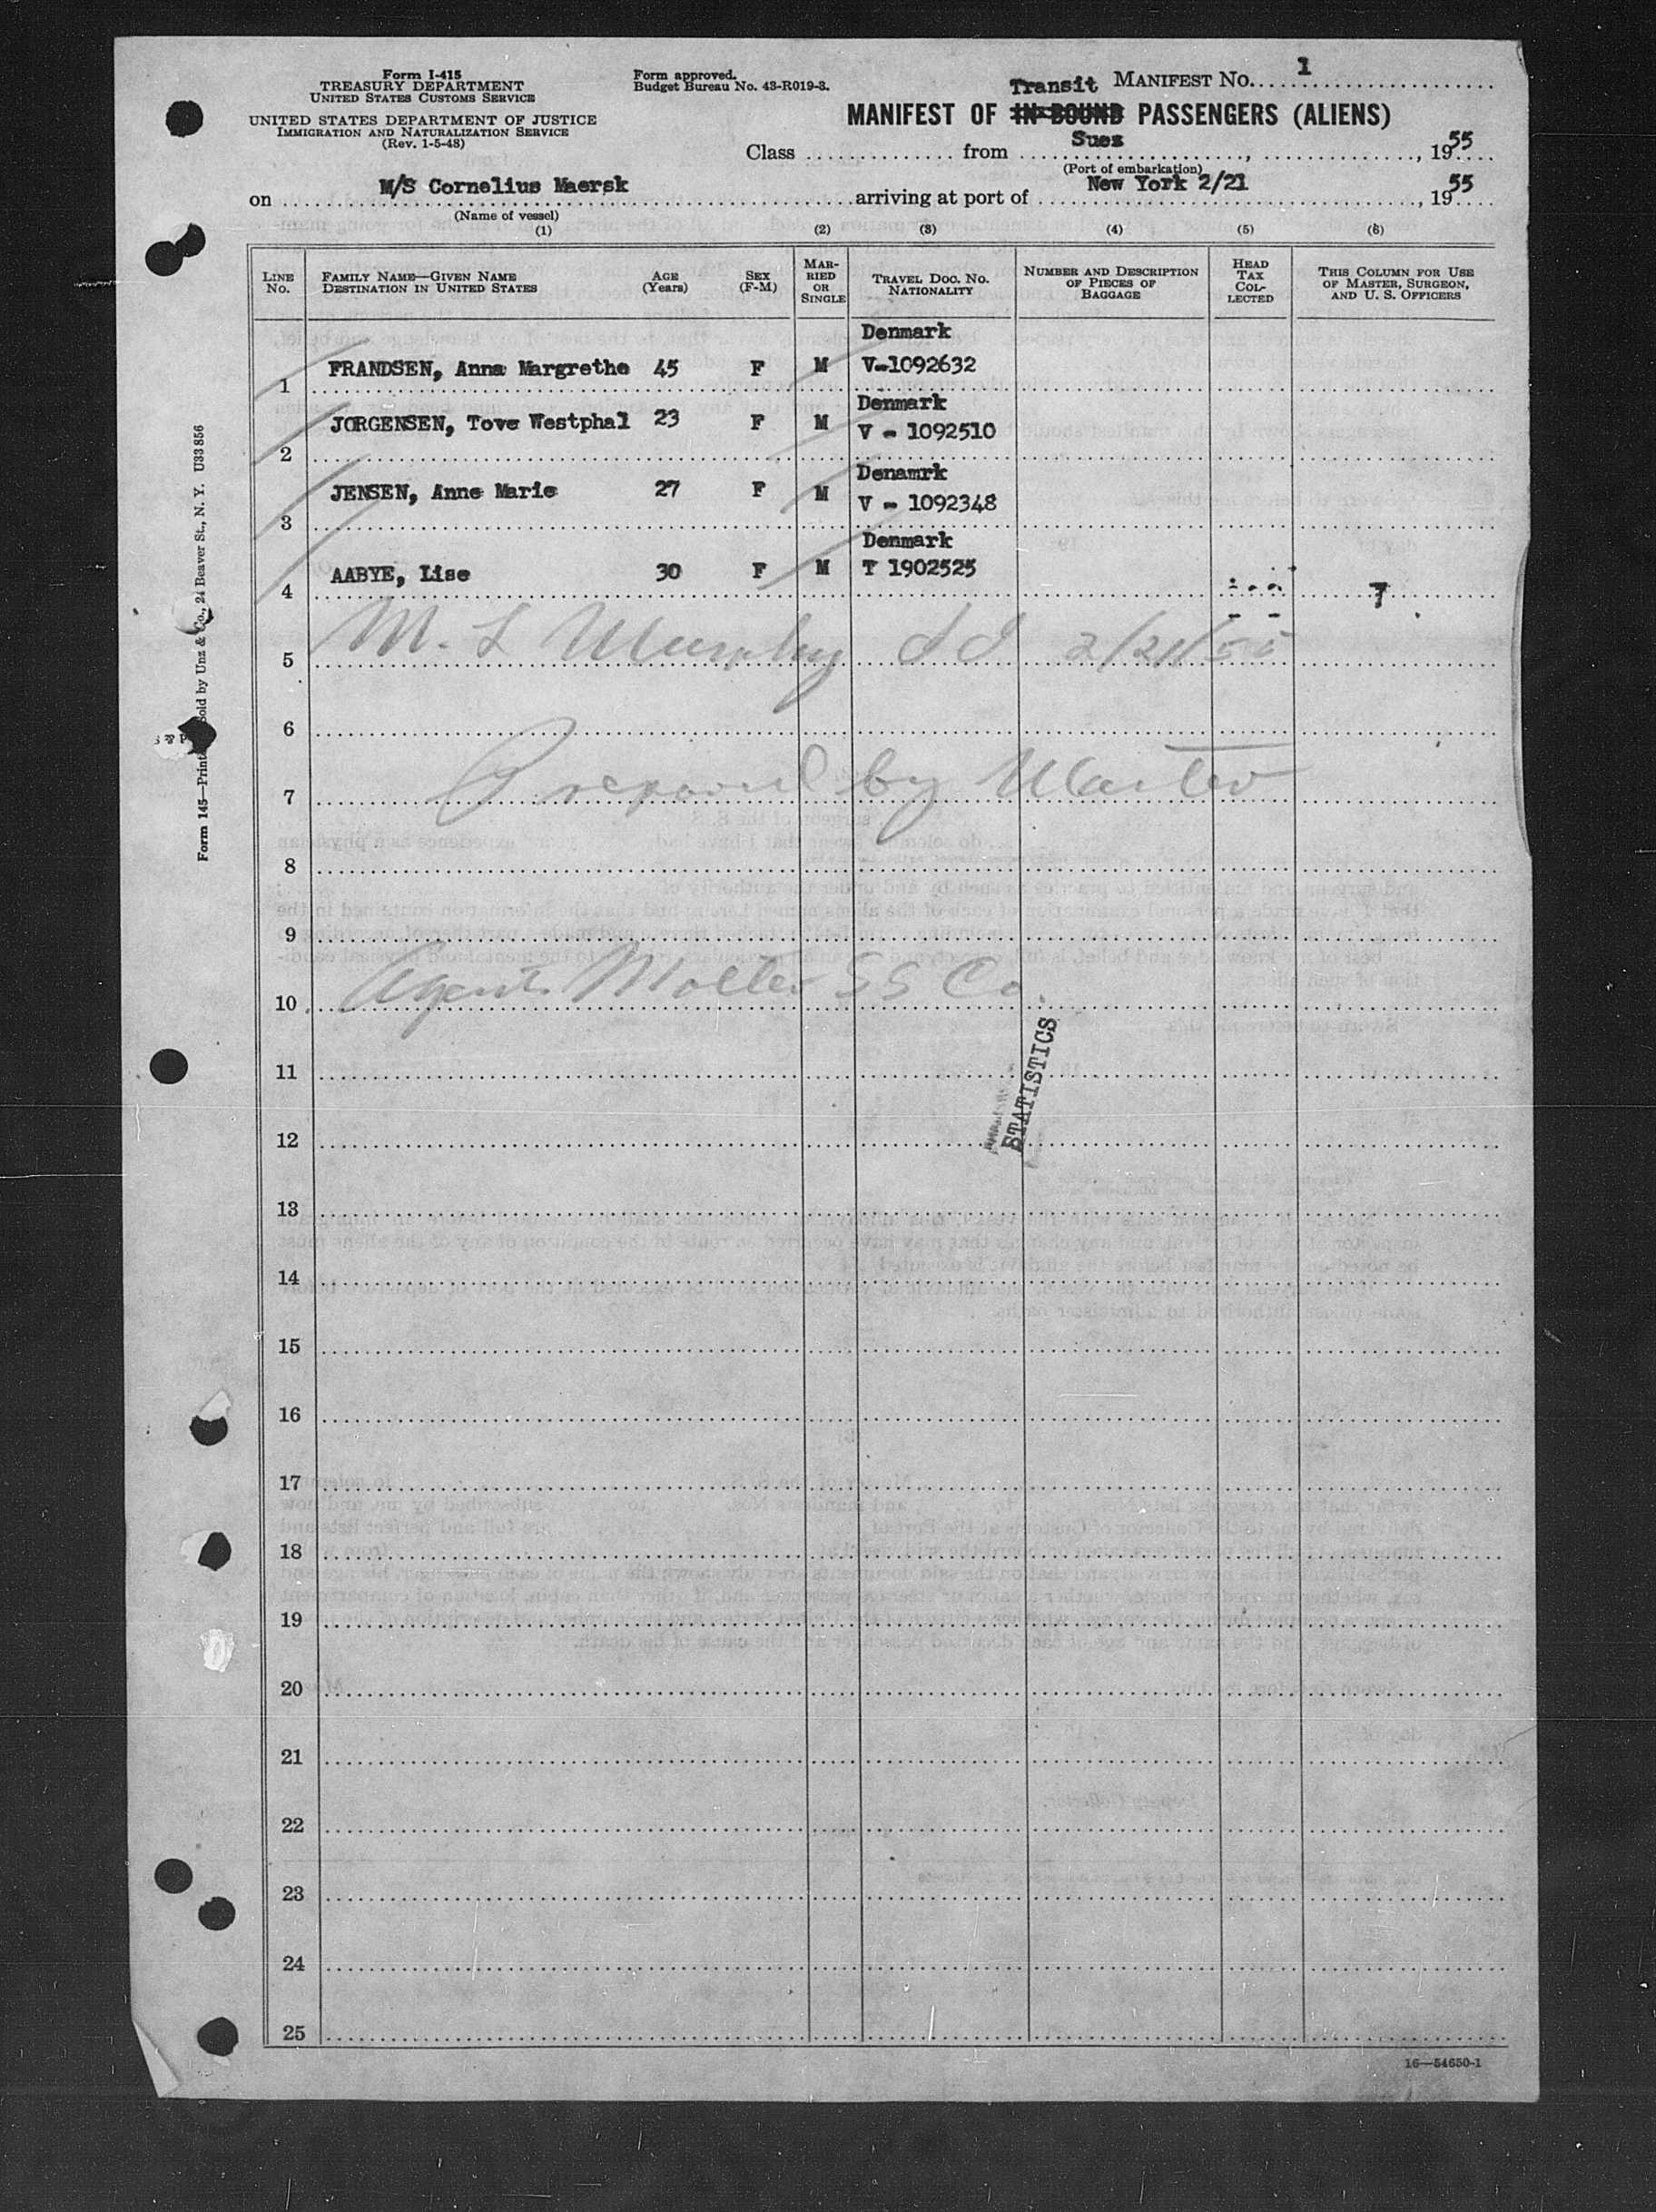 Form I-415
TREASURY DEPARTMENT
UNITED STATES CUSTOMS SERVICE
UNITED STATES DEPARTMENT OF JUSTICE
IMMIGRATION AND NATURALIZATION SERVICE
(Rev. 1-5-48)
Form approved.
Budget Bureau No. 43-R019-3.
Transit MANIFEST No. 1
MANIFEST OF IN-BOUND PASSENGERS (ALIENS)
Class from Suez, 1955
(Port of embarkation)
on M/S Cornelius Maersk arriving at port of New York 2/21, 1955
(Name of vessel)
(1) (2) (3) (4) (5) (6)
LINE No. FAMILY NAME—GIVEN NAME DESTINATION IN UNITED STATES AGE (Years) SEX (F-M) MARRIED OR SINGLE TRAVEL DOC. NO. NATIONALITY NUMBER AND DESCRIPTION OF PIECES OF BAGGAGE HEAD TAX COLLECTED THIS COLUMN FOR USE OF MASTER, SURGEON, AND U. S. OFFICERS
Denmark
1 FRANDSEN, Anna Margrethe 45 F M V-1092632
Denmark
2 JORGENSEN, Tove Westphal 23 F M V - 1092510
Denamrk
3 JENSEN, Anne Marie 27 F M V - 1092348
Denmark
4 AABYE, Lise 30 F M T 1902525 7
5 M. L Murphy 2/21/55
6
7 Prepared by Master
8
9
10 Agents Moller SS Co.
11
STATISTICS
12
13
14
15
16
17
18
19
20
21
22
23
24
25
16—54650-1
Form 145—Printed Sold by Unz & Co., 24 Beaver St., N. Y. U33856